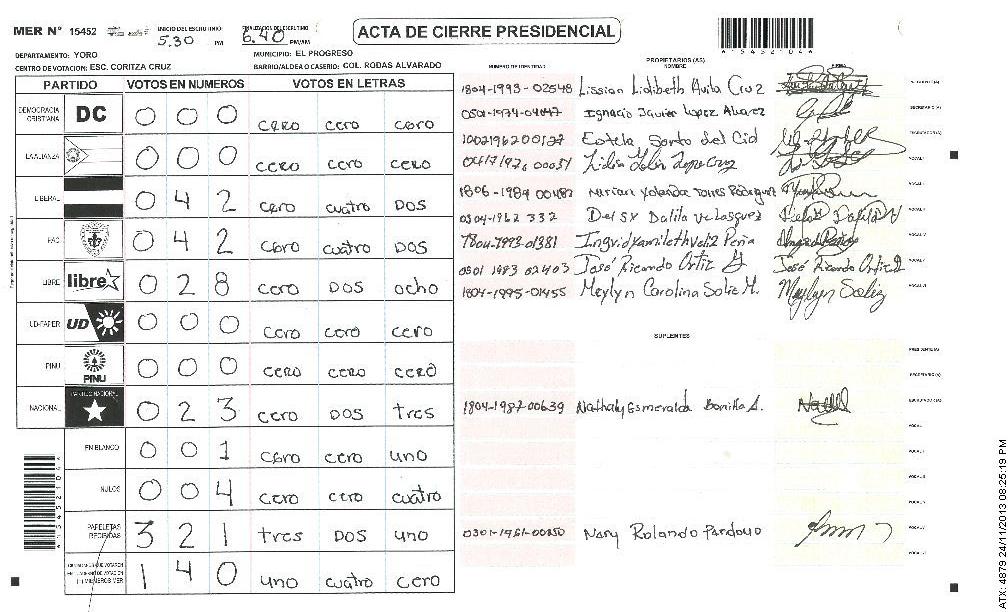 MER N° 15452 INICIO DEL ESCRUTINIO 5.30 PM FINALIZACION DEL ESCRUTINIO 6.40 PM/AM
ACTA DE CIERRE PRESIDENCIAL
DEPARTAMENTO: YORO MUNICIPIO: EL PROGRESO
CENTRO DE VOTACION: ESC. CORITZA CRUZ BARRIO/ALDEA O CASERIO: COL. RODAS ALVARADO
PARTIDO VOTOS EN NUMEROS VOTOS EN LETRAS
DEMOCRACIA CRISTIANA DC 0 0 0 cero cero cero
LA ALIANZA 0 0 0 cero cero cero
LIBERAL 0 4 2 cero cuatro DOS
PAC 0 4 2 cero cuatro DOS
LIBRE libre 0 2 8 cero DOS ocho
UD-FAPER UD 0 0 0 cero cero cero
PINU PINU 0 0 0 cero cero cero
NACIONAL PARTIDO NACIONAL 0 2 3 cero DOS tres
EN BLANCO 0 0 1 cero cero uno
NULOS 0 0 4 cero cero cuatro
PAPELETAS RECIBIDAS 3 2 1 tres DOS uno
1 4 0 uno cuatro cero
NUMERO DE IDENTIDAD PROPIETARIOS (AS) NOMBRE FIRMA
1804-1993-02548 Lission Lidibeth Avila Cruz
0501-1974-04047 Ignacio Javier Lopez Alvarez
1002196200127 Estela Santo del Cid
1806-1989 00487 Miriam Yolanda Torres Rodriguez
0504-1962 332 Delsy Dalila Velasquez
1804-1993-01381 Ingrid Yamileth Veliz Peña
0501 1983 02403 José Ricardo Ortiz José Ricardo Ortiz
1804-1995-01455 Meylyn Carolina Soliz M. Meylyn Soliz
SUPLENTES
1804-1987-00639 Nathaly Esmeralda Bonilla A.
0301-1961-00850 Nery Rolando Pardouo
PRESIDENTE(A)
SECRETARIO (A)
ESCRUTADOR (A)
A154521044
ATX: 4879 24/11/2013 08:25:19 PM